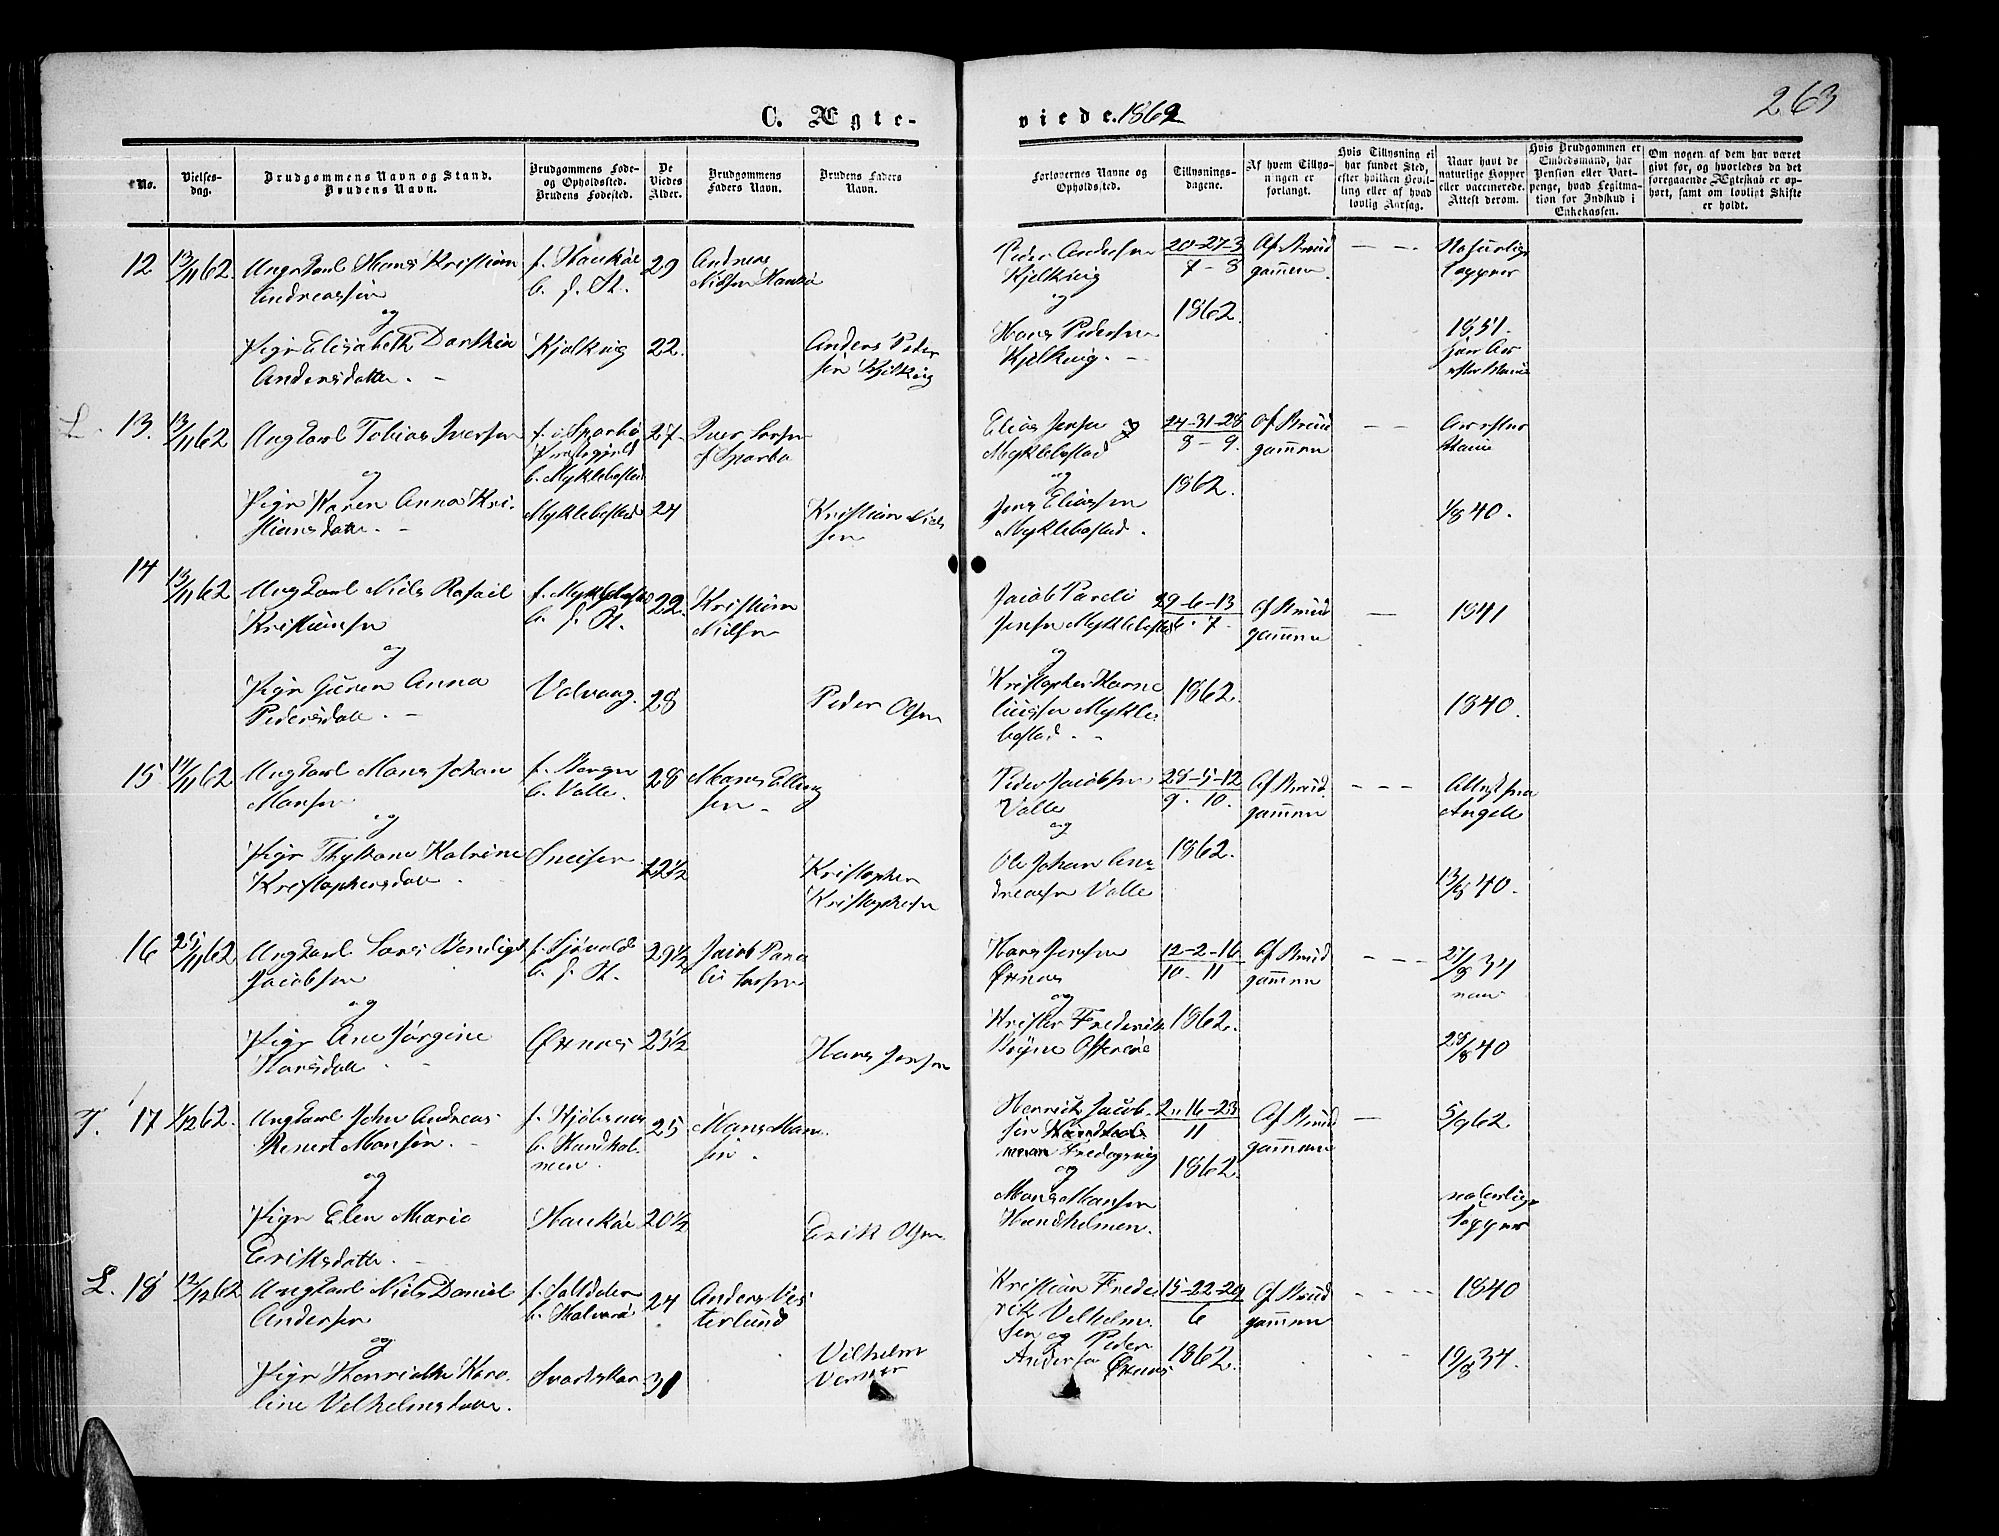 263
C. Ægte-
viede. 1862
No.
Vielses-
dag.
Brudgommens Navn og Stand.
Brudens Navn.
Brudgommens Føde-
og Opholdssted.
Brudens Fødested.
De
Viedes
Alder.
Brudgommens
Faders Navn.
Brudens Faders
Navn.
Forlovernes Navne og
Opholdssted.
Tillysnings-
dagene.
Af hvem Tillys-
ningen er
forlangt.
Hvis Tillysning ei
har fundet Sted,
efter hvilken Bevil-
ling eller af hvad
lovlig Aarsag.
Naar havt de
naturlige Kopper
eller vaccinerede.
Attest derom.
Hvis Brudgommen er
Embedsmand, har
Pension eller Vart-
penge, hvad Legitima-
tion for Indskud i
Enkekassen.
Om nogen af dem har været
givt før, og hvorledes da det
foregaaende Ægteskab er op-
hørt, samt om lovligt Skifte
er holdt.
12 13/11 62 Ungkarl Hans Kristian
Andreassen
og
Pige Elisabeth
Andersdatter
29
22.
Andreas
Nilsen
Anders Peder
sen Kjelkvig
Peder Andersen
Kjelkvig
og
Hans Pedersen
Kjelkvig.
20-27-3
7-8
1862.
Af Brud
gommen
Naturlige
Kopper
1851.
L. 13. 13/11 62 Ungkarl Tobias Iversen
og
Pige Karen Anna Kri-
stiansdatter
f. i Sparbo
Præstegjeld
b. Myklebostad
Myklebostad
27
24
Iver
Sparbo
Kristian Niel
sen
Elias Jensen
Myklebostad
og
Jens Eliassen
Myklebostad.
24-31-28
8-9.
1862.
Af Brud
gommen
1/8 40.
14 13/11 62 Ungkarl Niels Rafael
Kristiansen
og
Pige Guren Anna
Pedersdatter
f. Myklebostad
b. f. St.
Valvaag.
22.
28
Kristian
Nilsen
Peder Olsen
Jacob Pareli
Jensen Myklebostad
og
Kristopher Karne
liussen Mykle
bostad.
29-6-13
6-7
1862.
Af Brud
gommen
1841
1840.
15 14/11 62 Ungkarl Mons Johan
Monsen
og
Pige Katrine
Kristophersdatter
f. Bergen
b. Valle.
28
22 1/2
Mons Elling
sen
Kristopher
Kristophersen
Peder Jacobsen
Valle
og
Ole Johan An-
dreassen Valle
28-5-12
9-10.
1862.
Af Brud
gommen
13/8 40.
16 25/11 62 Ungkarl Lars Bendigt
Jacobsen
og
Pige Ane Jørgine
Hansdatter
b. f. St.
Ørnes
29 1/2
23 1/2
Jacob Para
li Larsen
Hans Jensen
Hans Jensen
Ørnes
og
Krister Frederik
12-2-16
10-11
1862.
Af Brud
gommen
28/8 40
T. 17 1/12 62. Ungkarl John Andreas
Benert Monsen
og
Pige Elen Marie
Eriksdatter
b. Handhol-
men.
25
20 1/2
Mons Mon
sen
Erik Olsen
Henrik Jacob-
sen
Fredagsvig
og
Mons Monsen
Handholmen.
2-16-23
11
1862.
Af Brud
gommen
5/9 62
naturlige
Kopper
L. 18 12/12 62 Ungkarl Niels Daniel
Andersen
og
Pige Henriethe Karo-
line Velhelmsdatter.
f. Saltdalen
24
31
Anders Ves
terlund
Vilhelm
Kristian Frede
rik Velhelm
sen og Peder
Andersen Ørnes
15-22-29
6
1862.
Af Brud
gommen
1840
19/8 34.